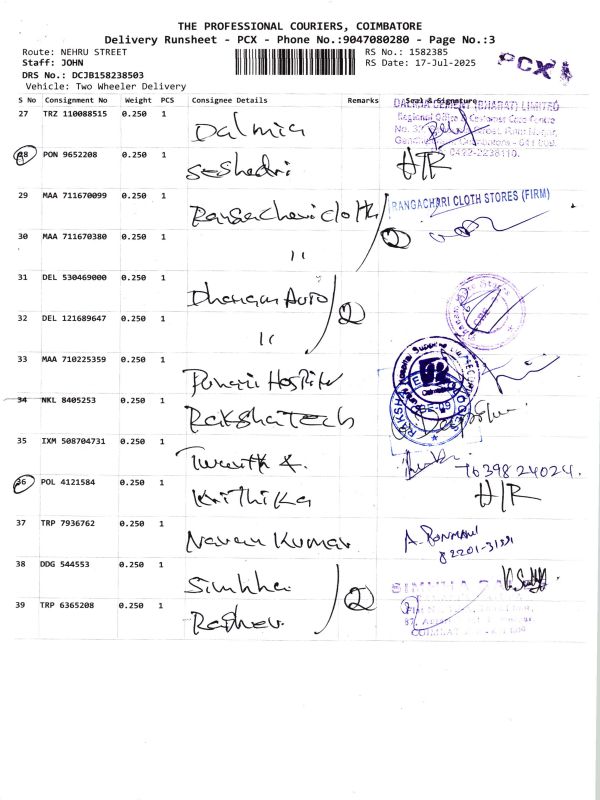 THE PROFESSIONAL COURIERS, COIMBATORE
Delivery Runsheet - PCX - Phone No.:9047080280 - Page No.:3
Route: NEHRU STREET
Staff: JOHN
DRS No.: DCJB158238503
Vehicle: Two Wheeler Delivery
RS No.: 1582385
RS Date: 17-Jul-2025
PCX
S No Consignment No Weight PCS Consignee Details Remarks Seal & Signature
27 TRZ 110088515 0.250 1 Dalmia
DALMIA CEMENT (BHARAT) LIMITED
28 PON 9652208 0.250 1 Seshadri H/R
0422-2238110.
29 MAA 711670099 0.250 1 Rangachari cloth
RANGACHARI CLOTH STORES (FIRM)
30 MAA 711670380 0.250 1 " 2
31 DEL 530469000 0.250 1 Dhangam Auto
32 DEL 121689647 0.250 1 " 2
33 MAA 710225359 0.250 1
34 NKL 8405253 0.250 1 Raksha Tech
35 IXM 508704731 0.250 1
7639824024.
36 POL 4121584 0.250 1 Krithika H/R
37 TRP 7936762 0.250 1 Naveen Kumar
38 DDG 544553 0.250 1 Simhha
39 TRP 6365208 0.250 1 2